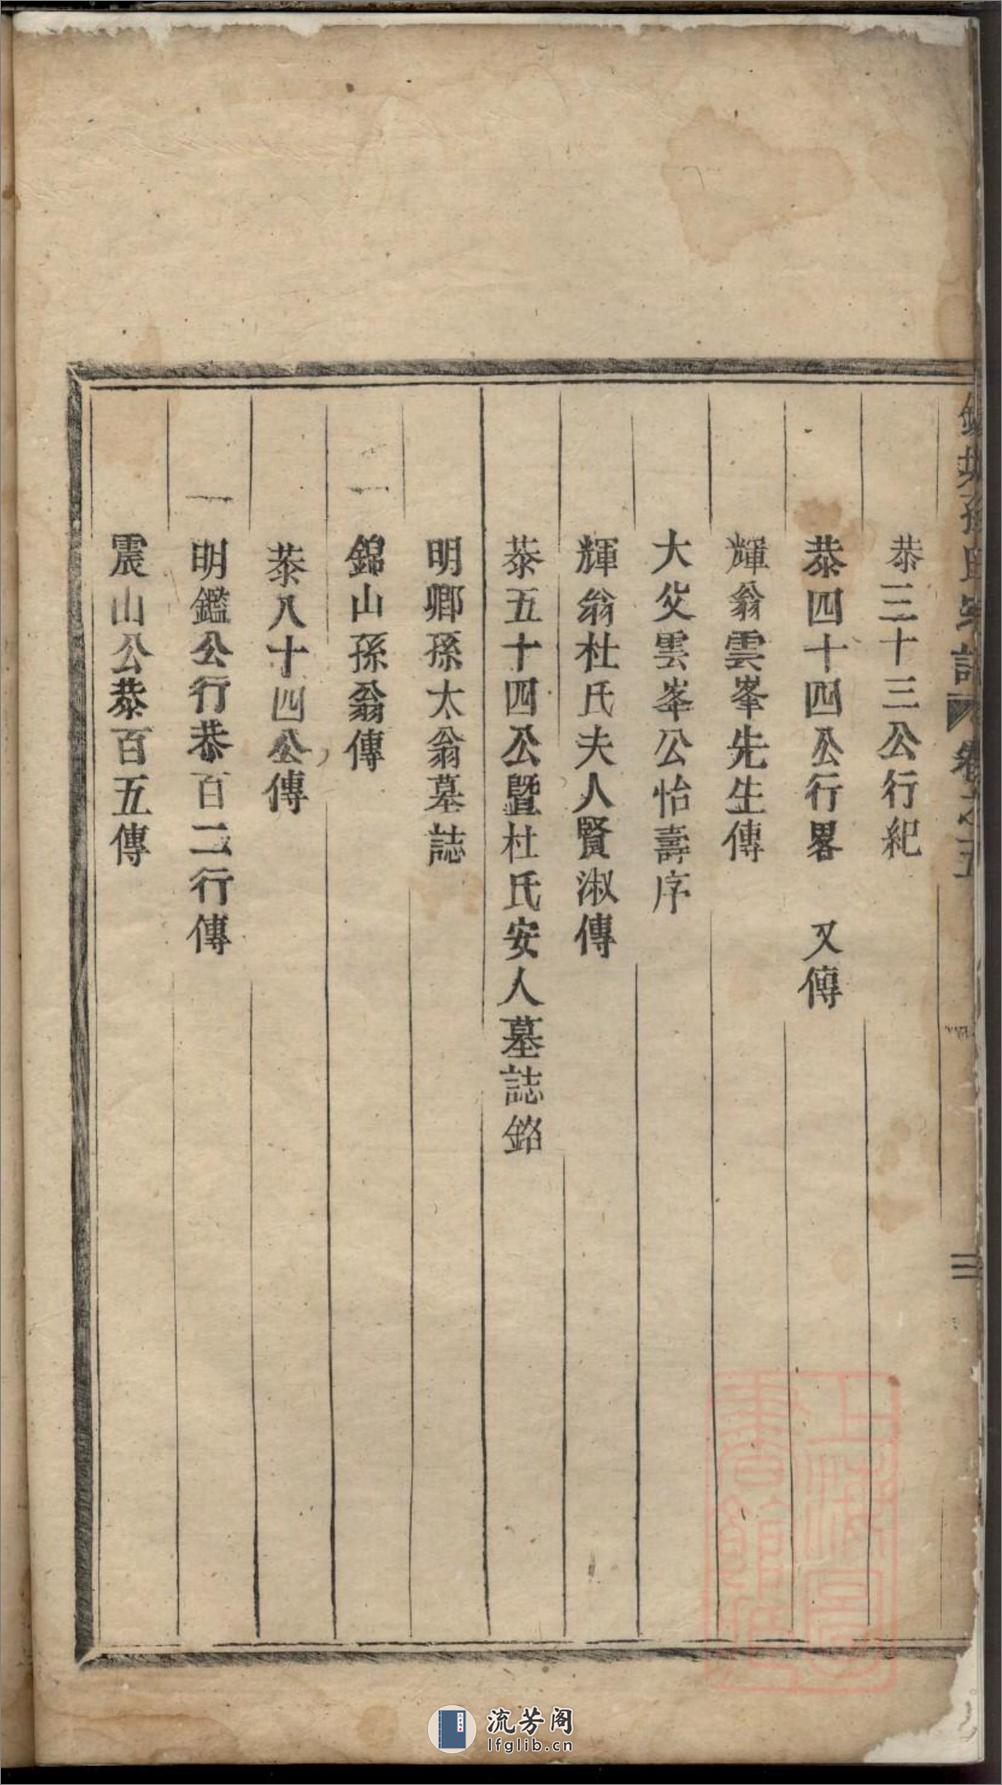 恭三十三公行紀
恭四十四公行畧　又傳
輝翁雲峯先生傳
大父雲峯公怡壽序
輝翁杜氏夫人賢淑傳
恭五十四公暨杜氏安人墓誌銘
明卿孫太翁墓誌
錦山孫翁傳
恭八十四公傳
明鑑公行恭百二行傳
震山公恭百五傳
孫氏宗譜
卷之五
三
上海圖書館藏
流芳阁
lfglib.cn